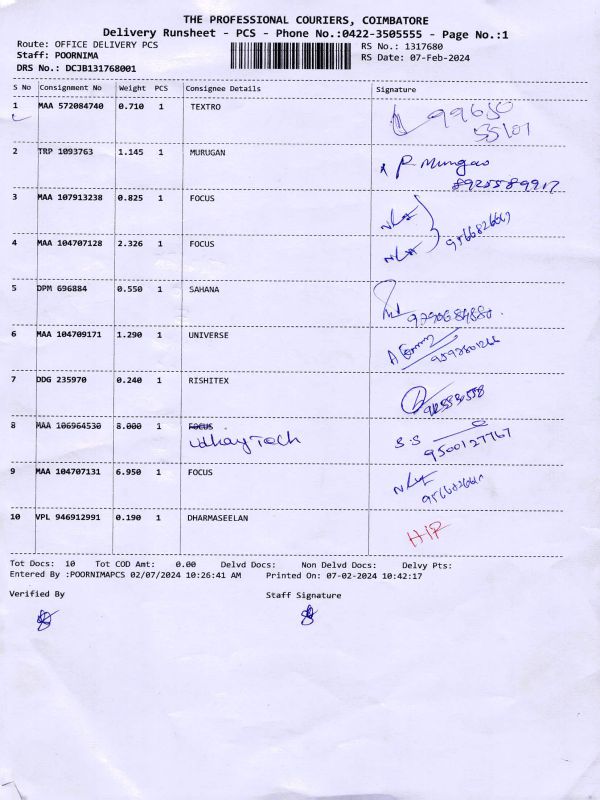 THE PROFESSIONAL COURIERS, COIMBATORE
Delivery Runsheet - PCS - Phone No.:0422-3505555 - Page No.:1
Route: OFFICE DELIVERY PCS
Staff: POORNIMA
DRS No.: DCJB131768001
RS No.: 1317680
RS Date: 07-Feb-2024
S No Consignment No Weight PCS Consignee Details Signature
1 MAA 572084740 0.710 1 TEXTRO
2 TRP 1093763 1.145 1 MURUGAN
8925589917
3 MAA 107913238 0.825 1 FOCUS
4 MAA 104707128 2.326 1 FOCUS
5 DPM 696884 0.550 1 SAHANA
6 MAA 104709171 1.290 1 UNIVERSE
7 DDG 235970 0.240 1 RISHITEX
8 MAA 106964530 8.000 1 FOCUS
Udhay Tech S.S
9500127767
9 MAA 104707131 6.950 1 FOCUS
10 VPL 946912991 0.190 1 DHARMASEELAN
Tot Docs: 10 Tot COD Amt: 0.00 Delvd Docs: Non Delvd Docs: Delvy Pts:
Entered By :POORNIMAPCS 02/07/2024 10:26:41 AM Printed On: 07-02-2024 10:42:17
Verified By Staff Signature